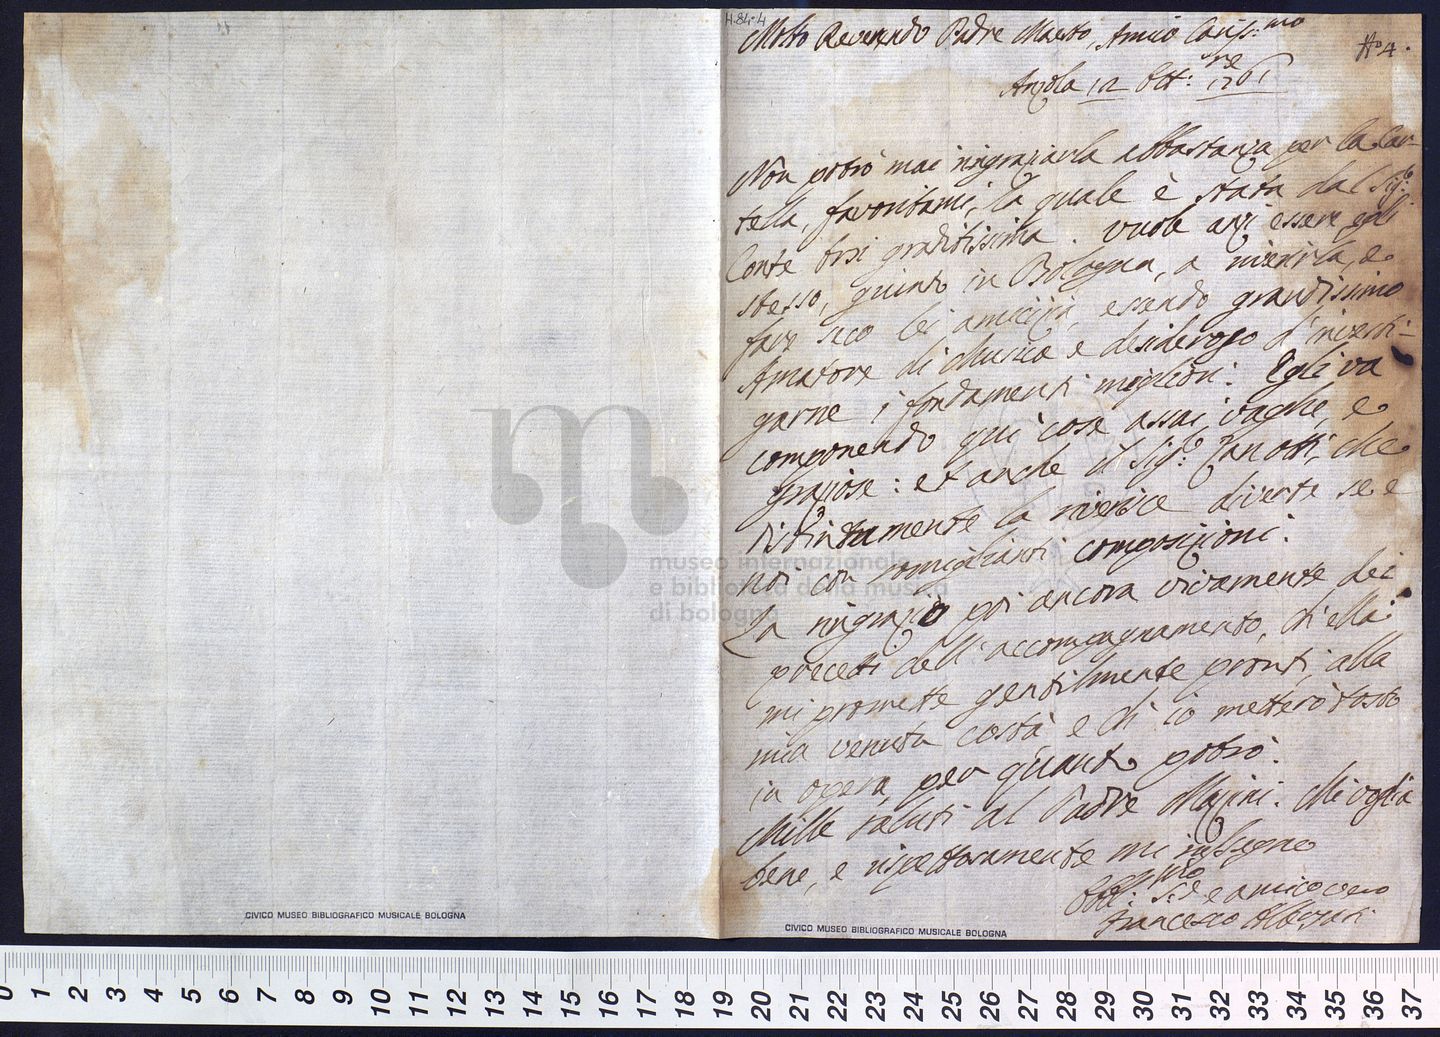 H.84.4
Molto Reverendo Padre Maestro, Amico Cariss:mo
N.o 4.
Anzola 12 Ott:re 1761
Non potrò mai ringraziarla abbastanza per la Car-
tella, favoritami, la quale è stata dal Sig:r
Conte Orsi graditissima. Vuole anzi essere egli
stesso, giunto in Bologna, a riverirla, e
far seco lei amicizia, essendo grandissimo
Amatore di Musica e desideroso d'investi-
garne i fondamenti migliori: Egli va
componendo qui cose assai vaghe, e
graziose: et anche il Sig:r Zanotti, che
distintamente la riverisce diverte se e
noi con somiglianti composizioni.
La ringrazio poi ancora vivamente dei
precetti dell'accompagnamento, ch'ella
mi promette gentilmente pronti, alla
mia venuta costà e ch'io metterò tosto
in opera, per quanto potrò.
Mille saluti al Padre Mazini. Mi voglia
bene, e rispettosamente mi rassegno
Obbl:mo e amico vero
Francesco Albergati
museo internazionale
e biblioteca della musica
di bologna
CIVICO MUSEO BIBLIOGRAFICO MUSICALE BOLOGNA
CIVICO MUSEO BIBLIOGRAFICO MUSICALE BOLOGNA
0 1 2 3 4 5 6 7 8 9 10 11 12 13 14 15 16 17 18 19 20 21 22 23 24 25 26 27 28 29 30 31 32 33 34 35 36 37